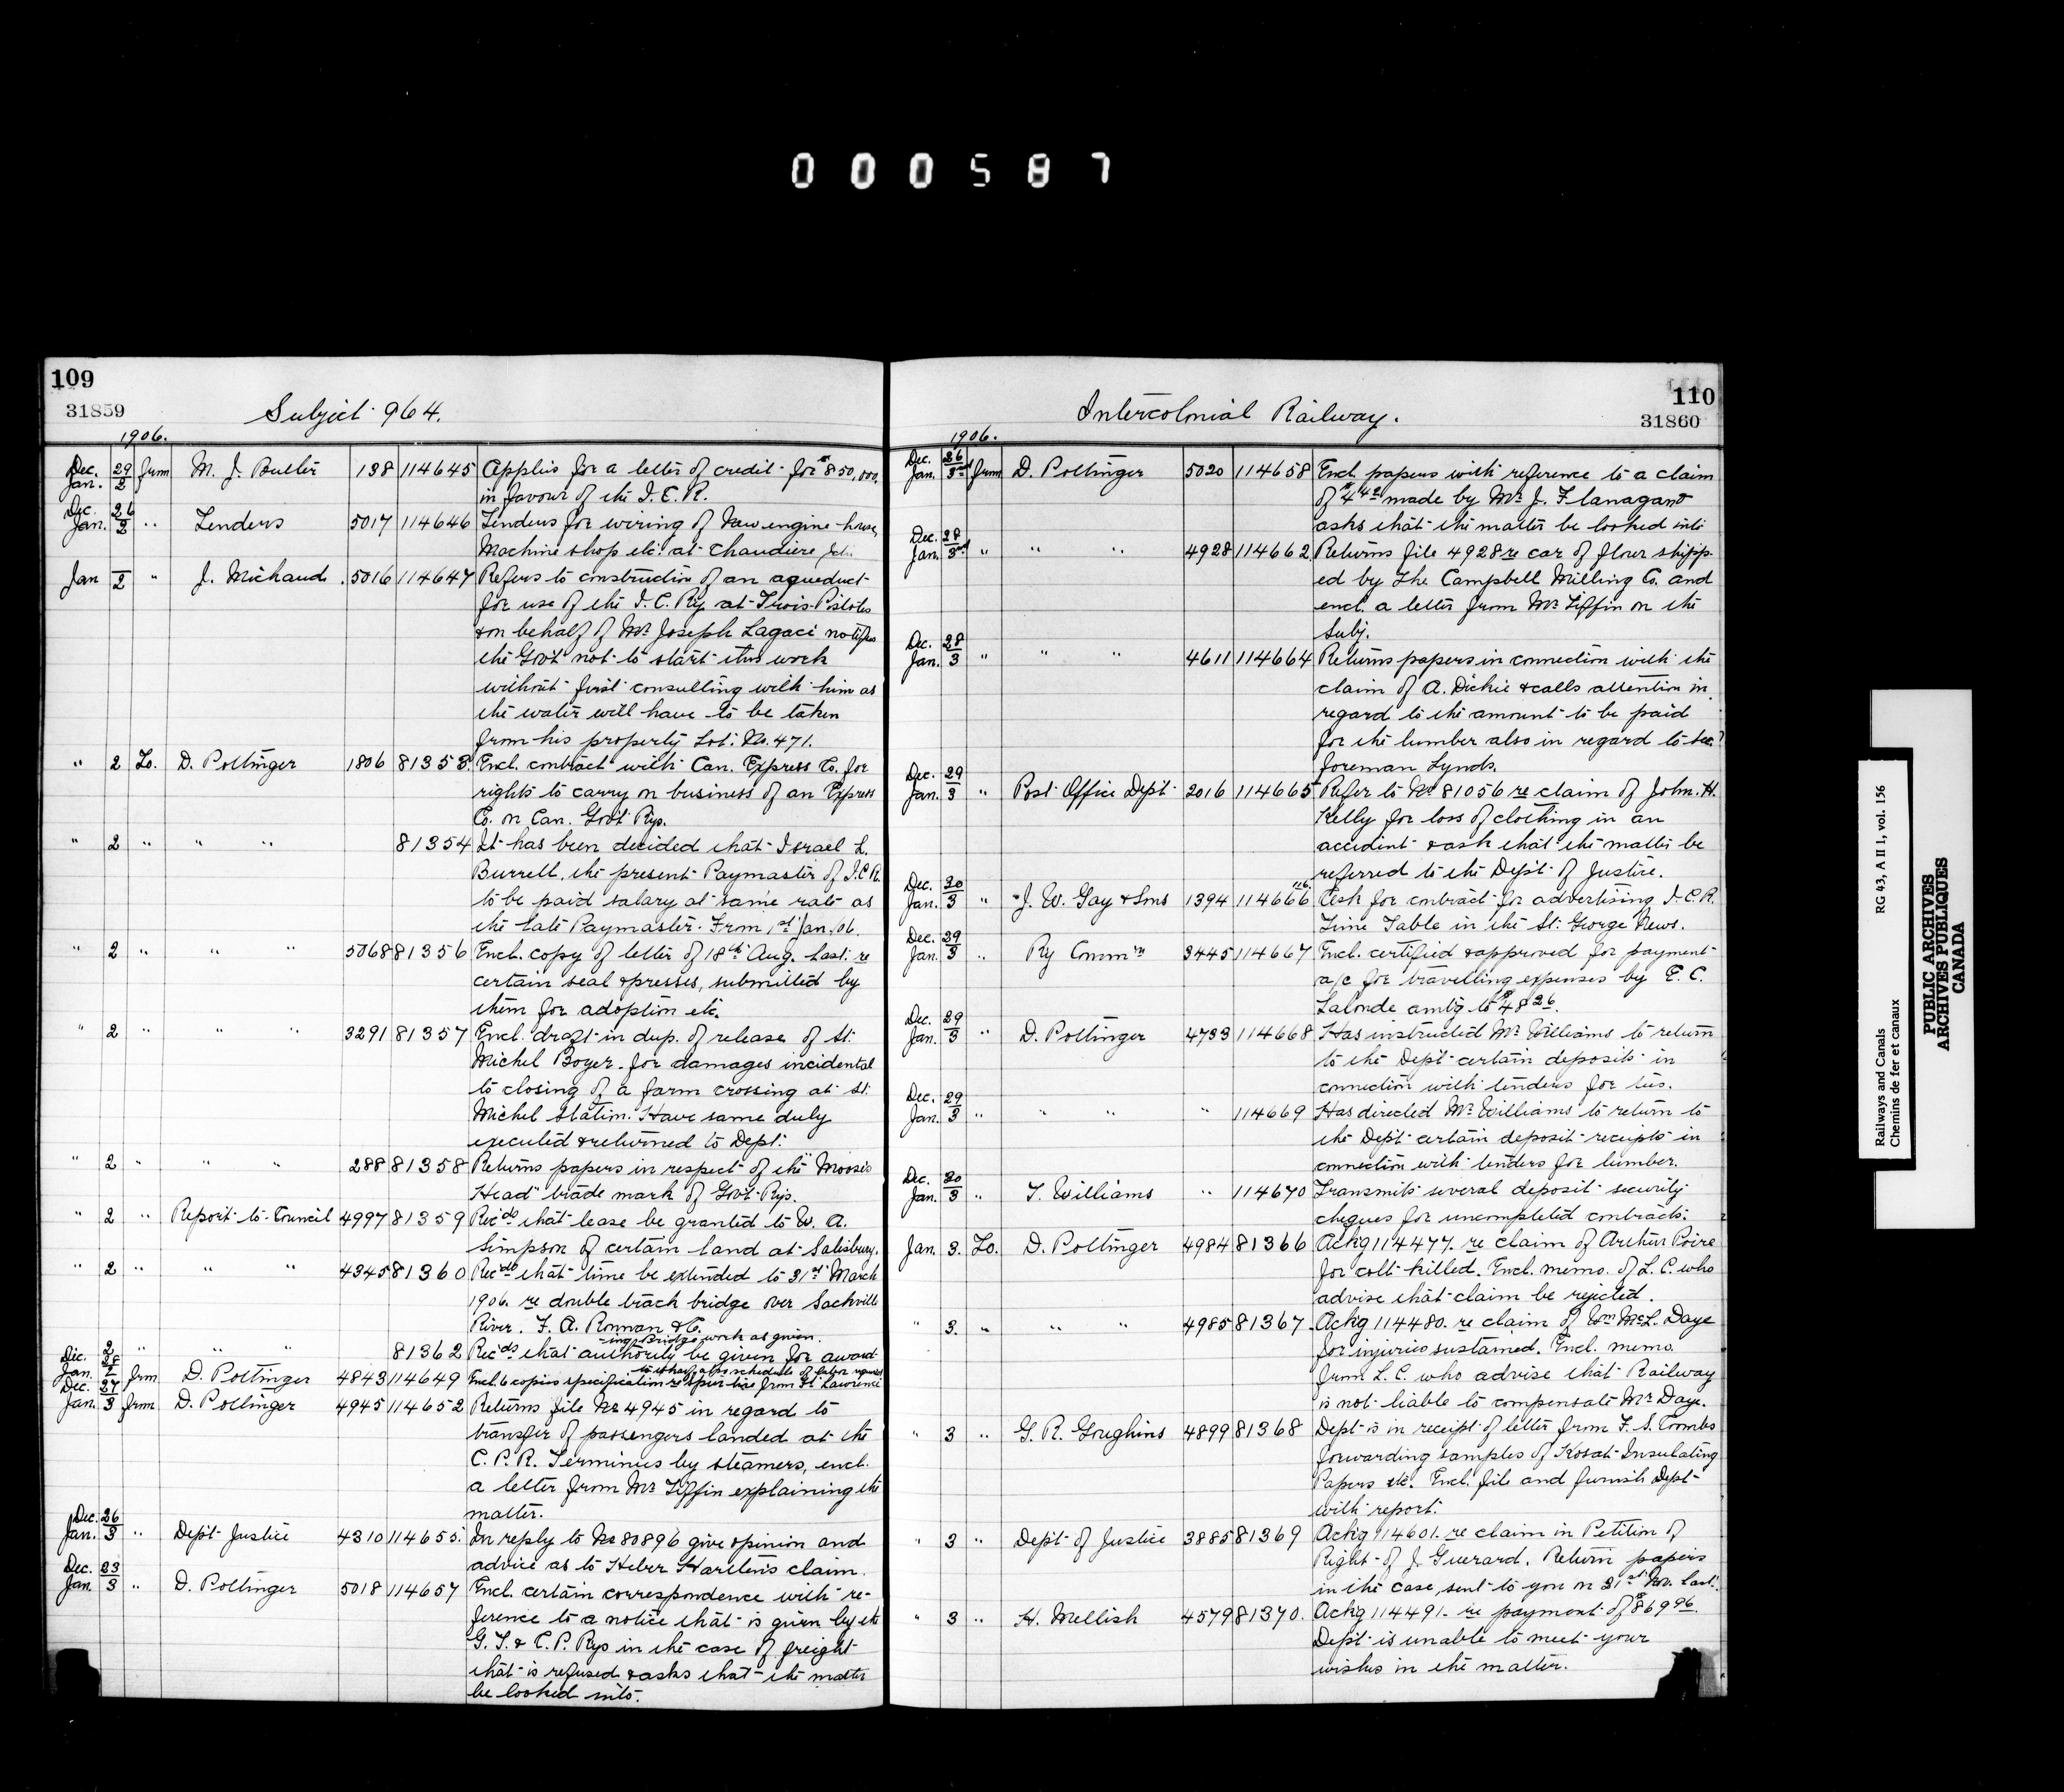 000587
109
31859
Subject 964.
1906.
Dec. 29 Jan. 2 from M. J. Butler 138 114645 Applies for a letter of credit for $850,000.
in favour of the I. C. R.
Dec. 26 Jan. 2 " Tenders 5017 114646 Tenders for wiring of New engine house,
Machine shop etc. at Chaudiere Jct.
Jan 2 " J. Michaud 5016 114647 Refers to construction of an aqueduct
for use of the I. C. Ry at Trois Pistoles
& on behalf of Mr Joseph Lagacé notifies
the Govt not to start this work
without first consulting with him as
the water will have to be taken
from his property Lot. No. 471.
" 2 To. D. Pottinger 1806 81353. Encl. contract with Can. Express Co. for
rights to carry on business of an Express
Co. on Can. Govt Rys.
" 2 " " " 81354 It has been decided that Israel L.
Burrell, the present Paymaster of I.C.R.
to be paid salary at same rate as
the late Paymaster. From 1st Jan. 06.
" 2 " " " 5068 81356 Encl. copy of letter of 18th Aug. last. re
certain seal & presses, submitted by
them for adoption etc.
" 2 " " " 3291 81357 Encl. draft in dup. of release of St.
Michel Boyer for damages incidental
to closing of a farm crossing at St.
Michel station. Have same duly
executed & returned to Dept.
" 2 " " " 288 81358 Returns papers in respect of the "Moose's
Head" trade mark of Govt Rys.
" 2 " Report to Council 4997 81359 Recds that lease be granted to W. A.
Simpson of certain land at Salisbury.
" 2 " " " 4345 81360 Recds that time be extended to 31st March
1906. re double track bridge over Sackville
River. F. A. Ronnan & Co.
-ing Bridge work as given.
" 2 " " " 81362 Recds that authority be given for award-
to wharf also schedule of labor
Dec. 28 Jan. 2 frm D. Pottinger 4843 114649 Encl. 6 copies specification re spur line from St. Lawrence
Dec. 27 Jan. 3 from D. Pottinger 4945 114652 Returns file No 4945 in regard to
transfer of passengers landed at the
C. P. R. Terminus by steamers, encl.
a letter from Mr Tiffin explaining the
matter.
Dec. 26 Jan. 3 " Dept Justice 4310 114655. In reply to No 80896 give opinion and
advice as to Heber Harsten's claim.
Dec. 23 Jan. 3 " D. Pottinger 5018 114657 Encl. certain correspondence with re-
ference to a notice that is given by the
G. T. & C. P. Rys in the case of freight
that is refused & asks that the matter
be looked into.
110
31860
Intercolonial Railway.
1906.
Dec. 26 Jan. 3rd from D. Pottinger 5020 114658 Encl. papers with reference to a claim
of $4.42 made by Mr J. Flanagan &
asks that the matter be looked into
Dec. 28 Jan. 3rd " " " 4928 114662 Returns file 4928 re car of flour shipp-
ed by The Campbell Milling Co. and
encl. a letter from Mr Tiffin on the
subj.
Dec. 28 Jan. 3 " " " 4611 114664 Returns papers in connection with the
claim of A. Dickie & calls attention in
regard to the amount to be paid
for the lumber also in regard to sec.
foreman Lynds.
Dec. 29 Jan. 3 " Post Office Dept 2016 114665 Refer to No 81056 re claim of John. H.
Kelly for loss of clothing in an
accident & ask that the matter be
referred to the Dept of Justice.
Dec. 30 Jan. 3 " J. W. Gay & Sons 1394 114666 Ask for contract for advertising I. C. R.
Time Table in the St. George News.
Dec. 29 Jan. 3 " Ry Commn 3445 114667 Encl. certified & approved for payment
a/c for travelling expenses by E. C.
Lalonde amtg to $48.26.
Dec. 29 Jan. 3 " D. Pottinger 4733 114668 Has instructed Mr Williams to return
to the Dept certain deposits in
connection with tenders for ties.
Dec. 29 Jan. 3 " " " " 114669 Has directed Mr Williams to return to
the Dept certain deposit receipts in
connection with tenders for lumber.
Dec. 30 Jan. 3 " T. Williams " 114670 Transmits several deposit security
cheques for uncompleted contracts.
Jan. 3. To. D. Pottinger 4984 81366 Ackg 114477. re claim of Arthur Poire
for colt killed. Encl. memo. of L. C. who
advise that claim be rejected.
" 3. " " " 4985 81367. Ackg 114480. re claim of Wm McL. Daye
for injuries sustained. Encl. memo.
from L. C. who advise that Railway
is not liable to compensate Mr Daye.
" 3 " G. R. Goughins 4899 81368 Dept is in receipt of letter from F. S. Combs
forwarding samples of Kosat Insulating
Papers etc. Encl. file and furnish Dept
with report.
" 3 " Dept of Justice 3885 81369 Ackg 114601. re claim in Petition of
Right of J. Guerard. Return papers
in the case, sent to you on 21st Nov. last.
" 3 " H. Mellish 4579 81370. Ackg 114491. re payment of $869.96.
Dept is unable to meet your
wishes in the matter.
RG 43, A II 1, vol. 156
Railways and Canals
Chemins de fer et canaux
PUBLIC ARCHIVES
ARCHIVES PUBLIQUES
CANADA